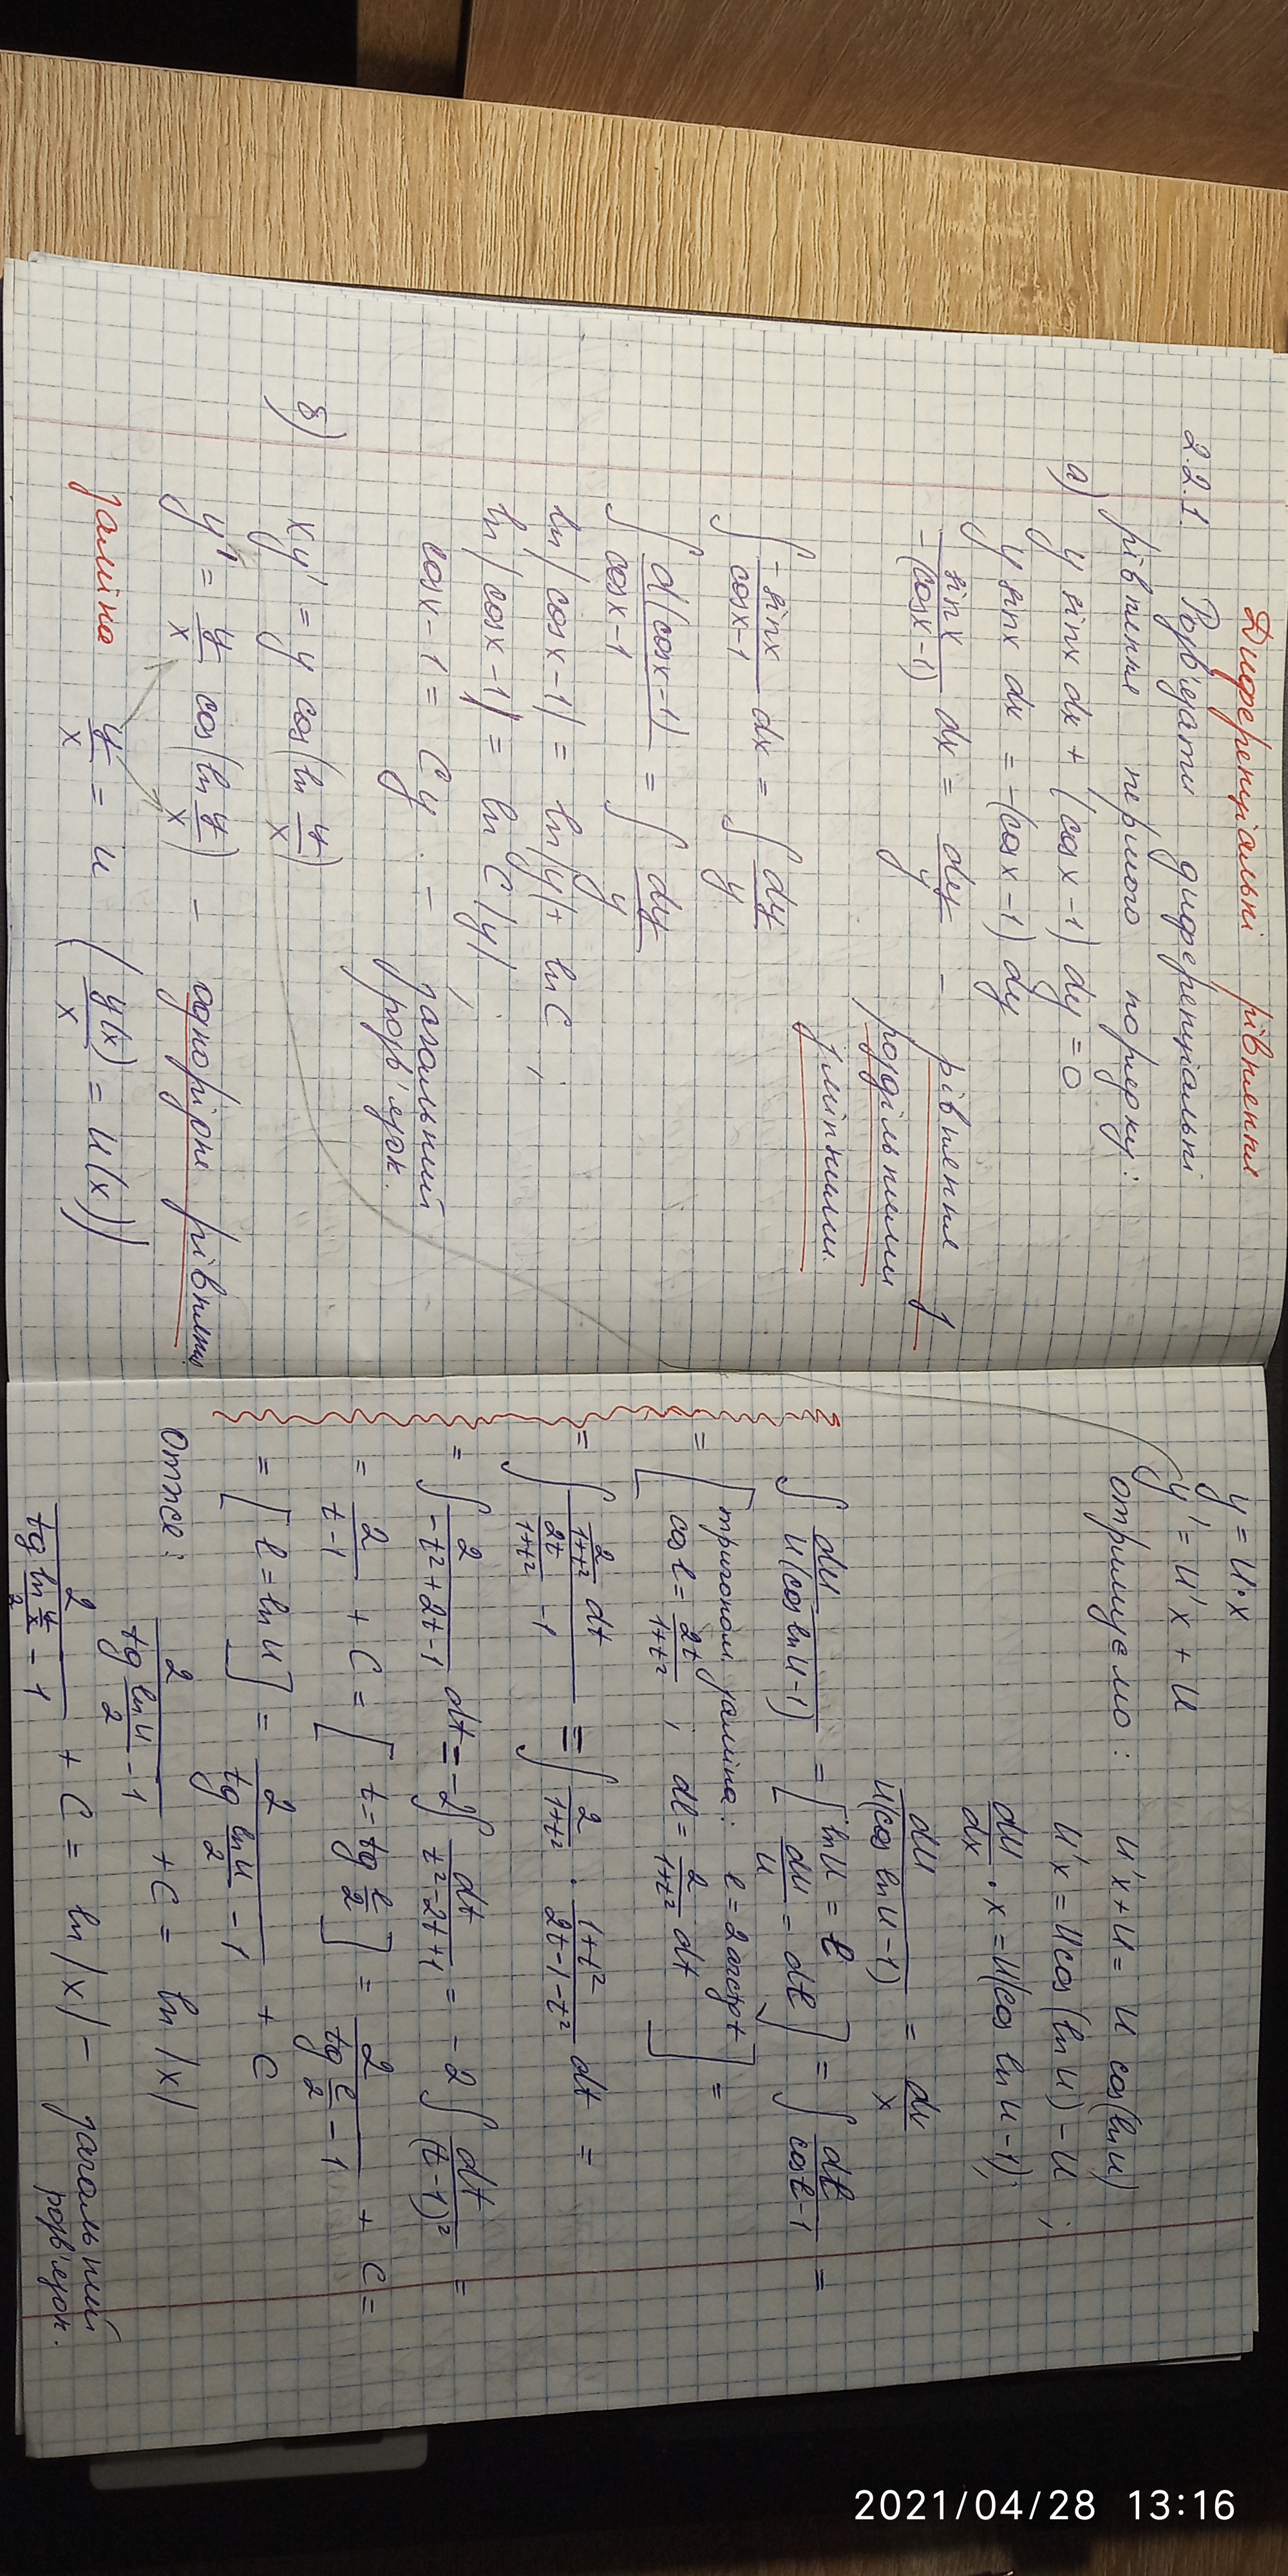 Диференціальні рівняння
2.2.1. Розв'язати диференціальні
рівняння першого порядку:
а) y sinx dx + (cosx-1) dy = 0
y sinx dx = -(cosx-1) dy
sinx/-(cosx-1) dx = dy/y - рівняння з
роздільними
змінними.
∫ -sinx/cosx-1 dx = ∫ dy/y
∫ d(cosx-1)/cosx-1 = ∫ dy/y
ln|cosx-1| = ln|y| + lnC ;
ln|cosx-1| = ln C|y| ;
cosx-1 = Cy. - загальний
розв'язок.
б) xy' = y cos(ln y/x)
y' = y/x cos(ln y/x) - однорідне рівняння.
заміна y/x = u (y(x)/x = u(x))
y = u·x
y' = u'x + u
отримуємо: u'x + u = u cos(ln u)
u'x = u cos(ln u) - u ;
du/dx · x = u(cos ln u - 1);
du/u(cos ln u - 1) = dx/x
∫ du/u(cos ln u - 1) = [ln u = l du/u = dl] = ∫ dl/cosl-1 =
= [тригоном. заміна: l = 2arctg t cos l = 2t/1+t² ; dl = 2/1+t² dt] =
= ∫ 2/1+t² dt / 2t/1+t² - 1 = ∫ 2/1+t² · 1+t²/2t-1-t² dt =
= ∫ 2/-t²+2t-1 dt = -2∫ dt/t²-2t+1 = -2 ∫ dt/(t-1)² =
= 2/t-1 + C = [t = tg l/2] = 2/tg l/2 - 1 + C =
= [l = ln u] = 2/tg ln u/2 - 1 + C
Отже: 2/tg ln u/2 - 1 + C = ln|x|
2/tg ln y/x/2 - 1 + C = ln|x| - загальний
розв'язок.
2021/04/28 13:16